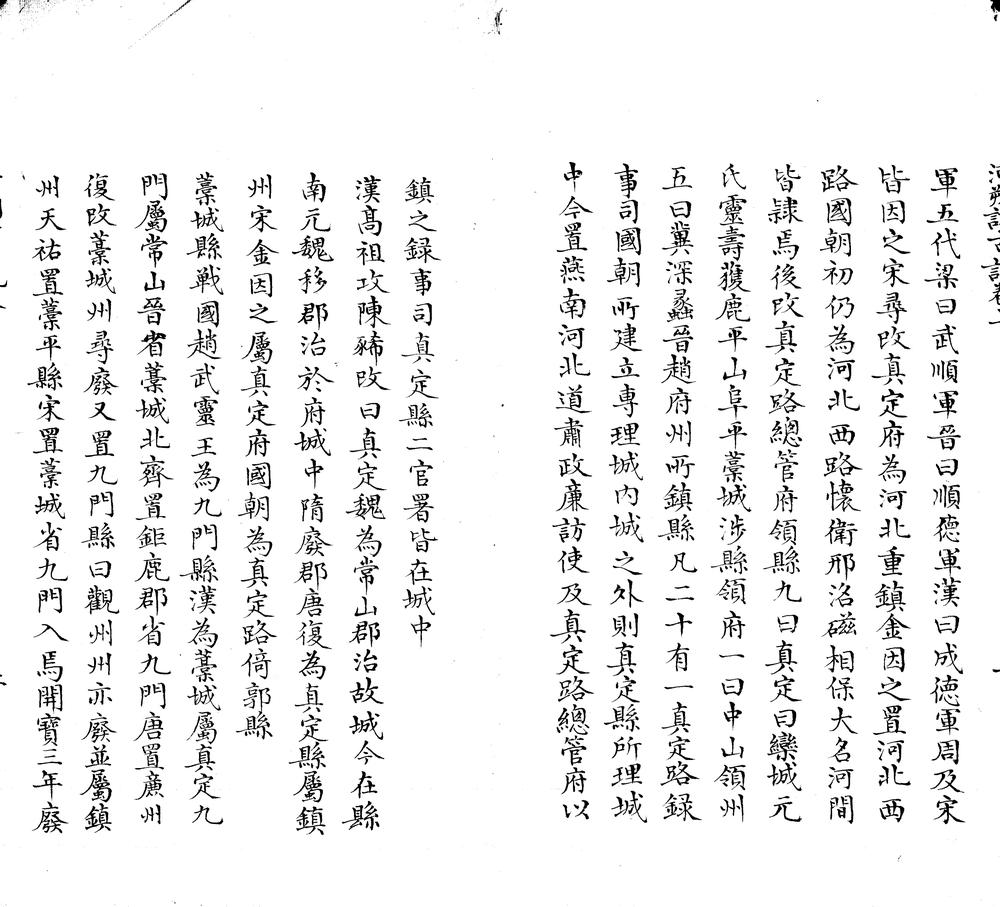 河朔訪古記卷上
軍五代梁曰武順軍晉曰順德軍漢曰成德軍周及宋
皆因之宋尋改真定府為河北重鎮金因之置河北西
路國朝初仍為河北西路懷衛邢洺磁相保大名河間
皆隸焉後改真定路總管府領縣九曰真定曰欒城元
氏靈壽獲鹿平山阜平藁城涉縣領府一曰中山領州
五曰冀深蠡晉趙府州所鎮縣凡二十有一真定路録
事司國朝所建立専理城内城之外則真定縣所理城
中今置燕南河北道肅政廉訪使及真定路總管府以
鎮之録事司真定縣二官署皆在城中
漢髙祖攻陳豨改曰真定魏為常山郡治故城今在縣
南元魏移郡治於府城中隋廢郡唐復為真定縣屬鎮
州宋金因之屬真定府國朝為真定路倚郭縣
藁城縣戰國趙武靈王為九門縣漢為藁城屬真定九
門屬常山晉省藁城北齊置鉅鹿郡省九門唐置廉州
復改藁城州尋廢又置九門縣曰觀州州亦廢並屬鎮
州天祐置藁平縣宋置藁城省九門入焉開寶三年廢